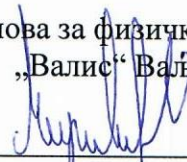 нова за физичк
„Валис“ Ваљ